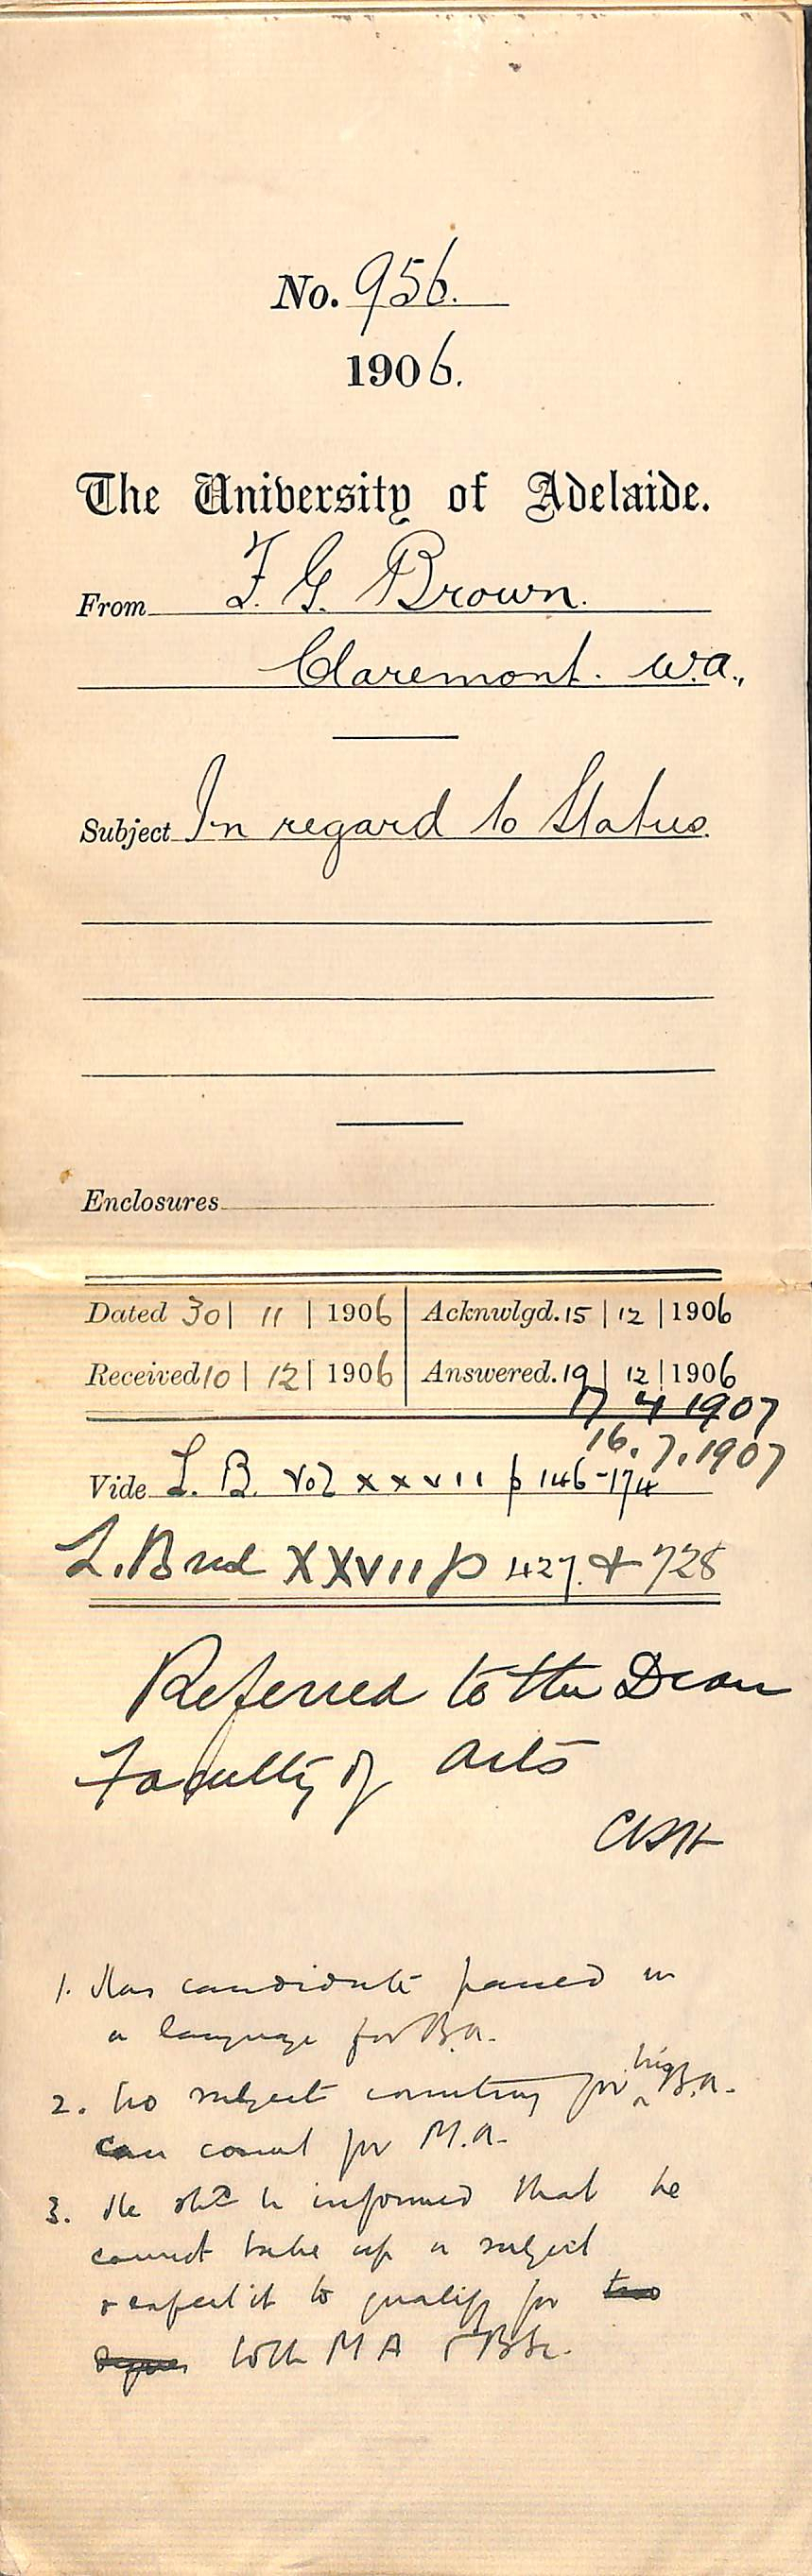 No. 956.
1906.
The University of Adelaide.
From F. G. Brown.
Claremont. W.A.,
Subject In regard to Status.
Enclosures
Dated 30 | 11 | 1906 Acknwlgd. 15 | 12 | 1906
Received 10 | 12 | 1906 Answered. 19 | 12 | 1906
17 4 1907
16. 7. 1907
Vide L. B. Vol XXVII p 146-174
L. B XXVII p 427. & 728
Referred to the Dean
Faculty of Arts
1. Has candidate passed in
a language for B.A.
2. No subject counting for his B.A.
can count for M.A.
3. He shd be informed that he
cannot take up a subject
& expect it to qualify for two
degrees both M A & BSc.